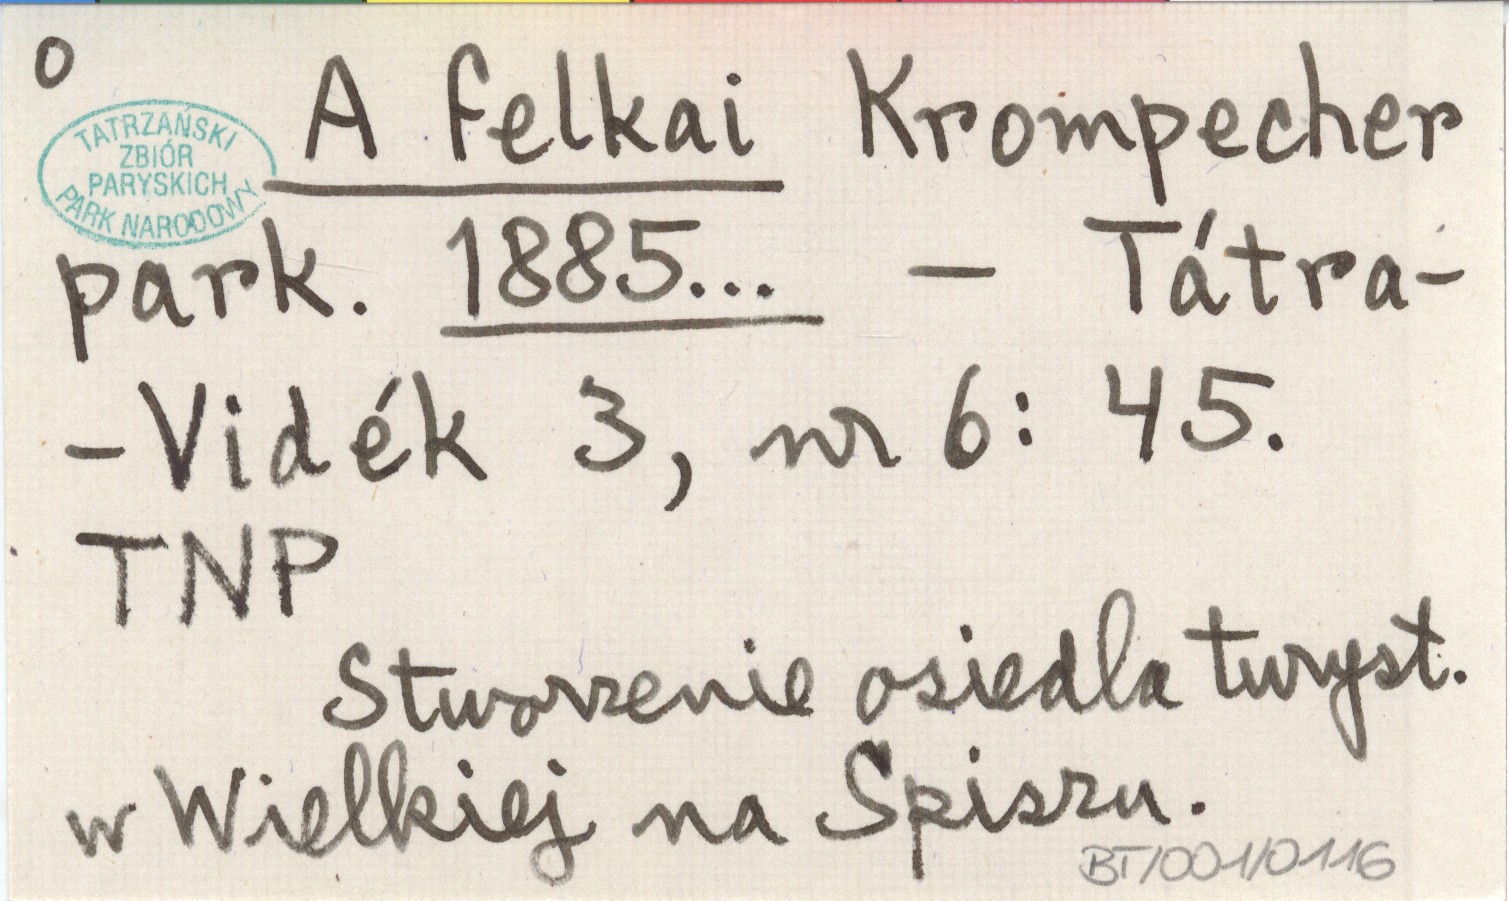 o A felkai Krompecher
TATRZAŃSKI
ZBIÓR
PARYSKICH
PARK NARODOWY
park. 1885... – Tátra-
-Vidék 3, nr 6: 45.
TNP
Stworzenie osiedla turyst.
w Wielkiej na Spiszu.
BT/001/0116